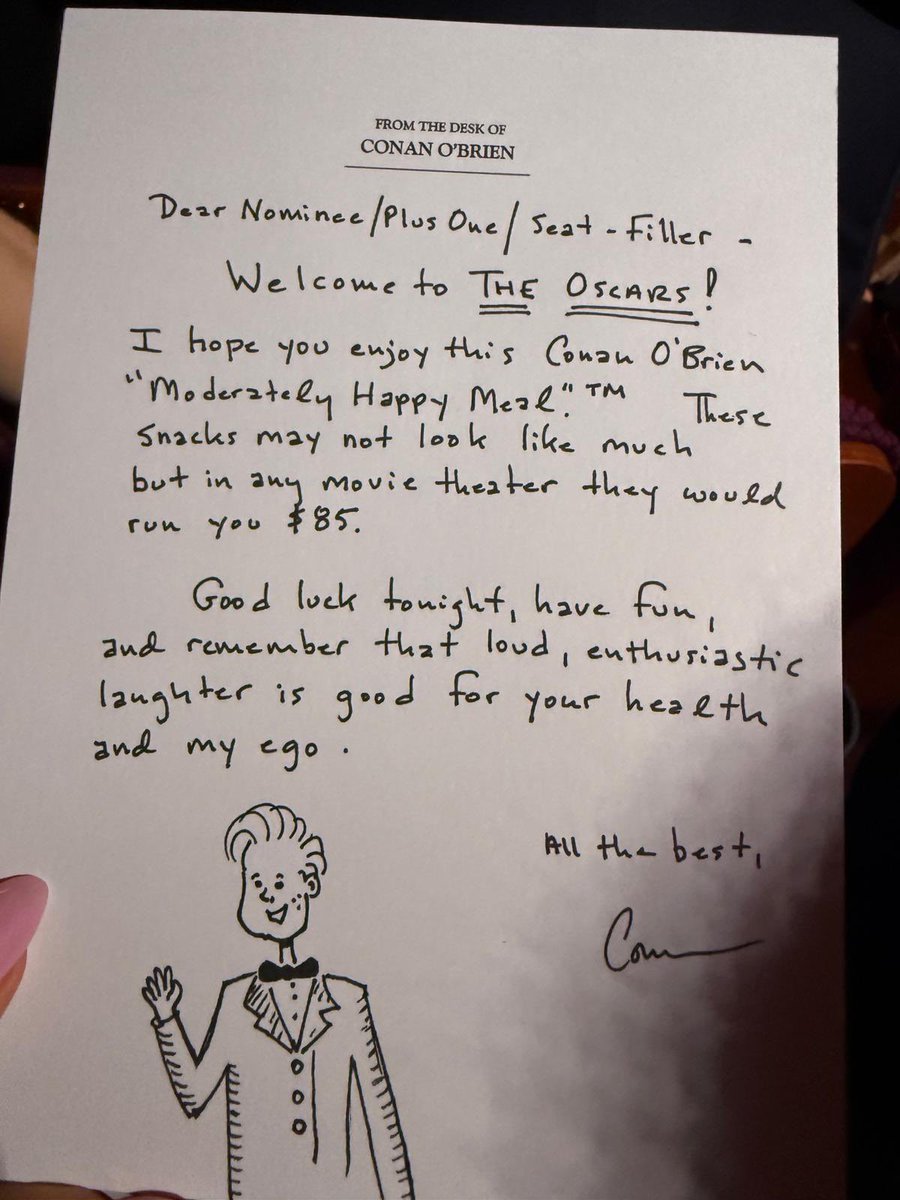 FROM THE DESK OF
CONAN O'BRIEN
Dear Nominee/Plus One/Seat-Filler -
Welcome to THE OSCARS!
I hope you enjoy this Conan O'Brien
"Moderately Happy Meal."™ These
snacks may not look like much
but in any movie theater they would
run you $85.
Good luck tonight, have fun,
and remember that loud, enthusiastic
laughter is good for your health
and my ego.
All the best,
Conan